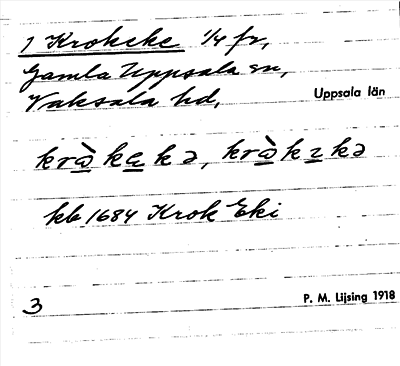 1 Krokeke 1/4 fr,
Gamla Uppsala sn,
Vaksala hd, Uppsala län
krὼkekə, krὼkɪkə
kb 1684 Krok Eki
3 P. M. Lijsing 1918